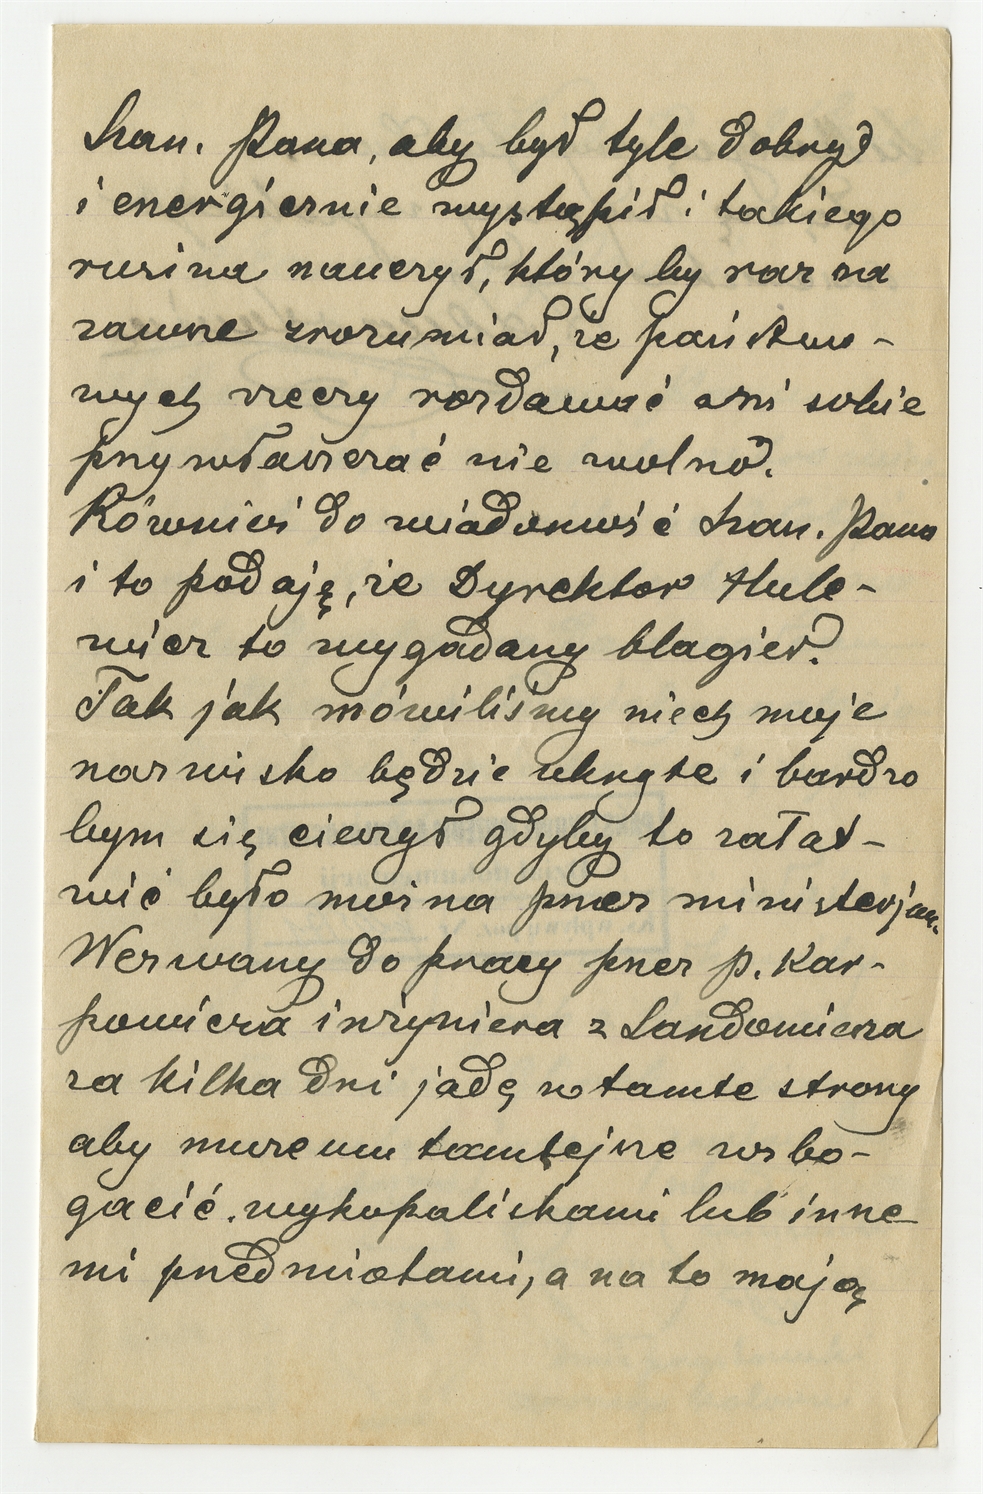 Szan. Pana, aby był tyle dobryd
i energicznie wystąpił i takiego
rusina nauczył, który by raz na
zawsze zrozumiał, że państwo-
wych rzeczy rozdawać ani sobie
przywłaszczać nie wolno.
Również do wiadomość é Szan. Pana
i to podaję, że Dyrektor Hule-
wicz to wygadany blagier.
Tak jak mówiliśmy niech moje
nazwisko będzie ukryte i bardzo
bym się cieszył gdyby to załat-
wić było można przez ministerjum.
Wezwany do pracy przez p. Kar-
powicza inżyniera z Sandomierza
za kilka dni jadę w tamte strony
aby muzeum tamtejsze wzbo-
gacić wykopaliskami lub inne-
mi przedmiotami, a na to mają